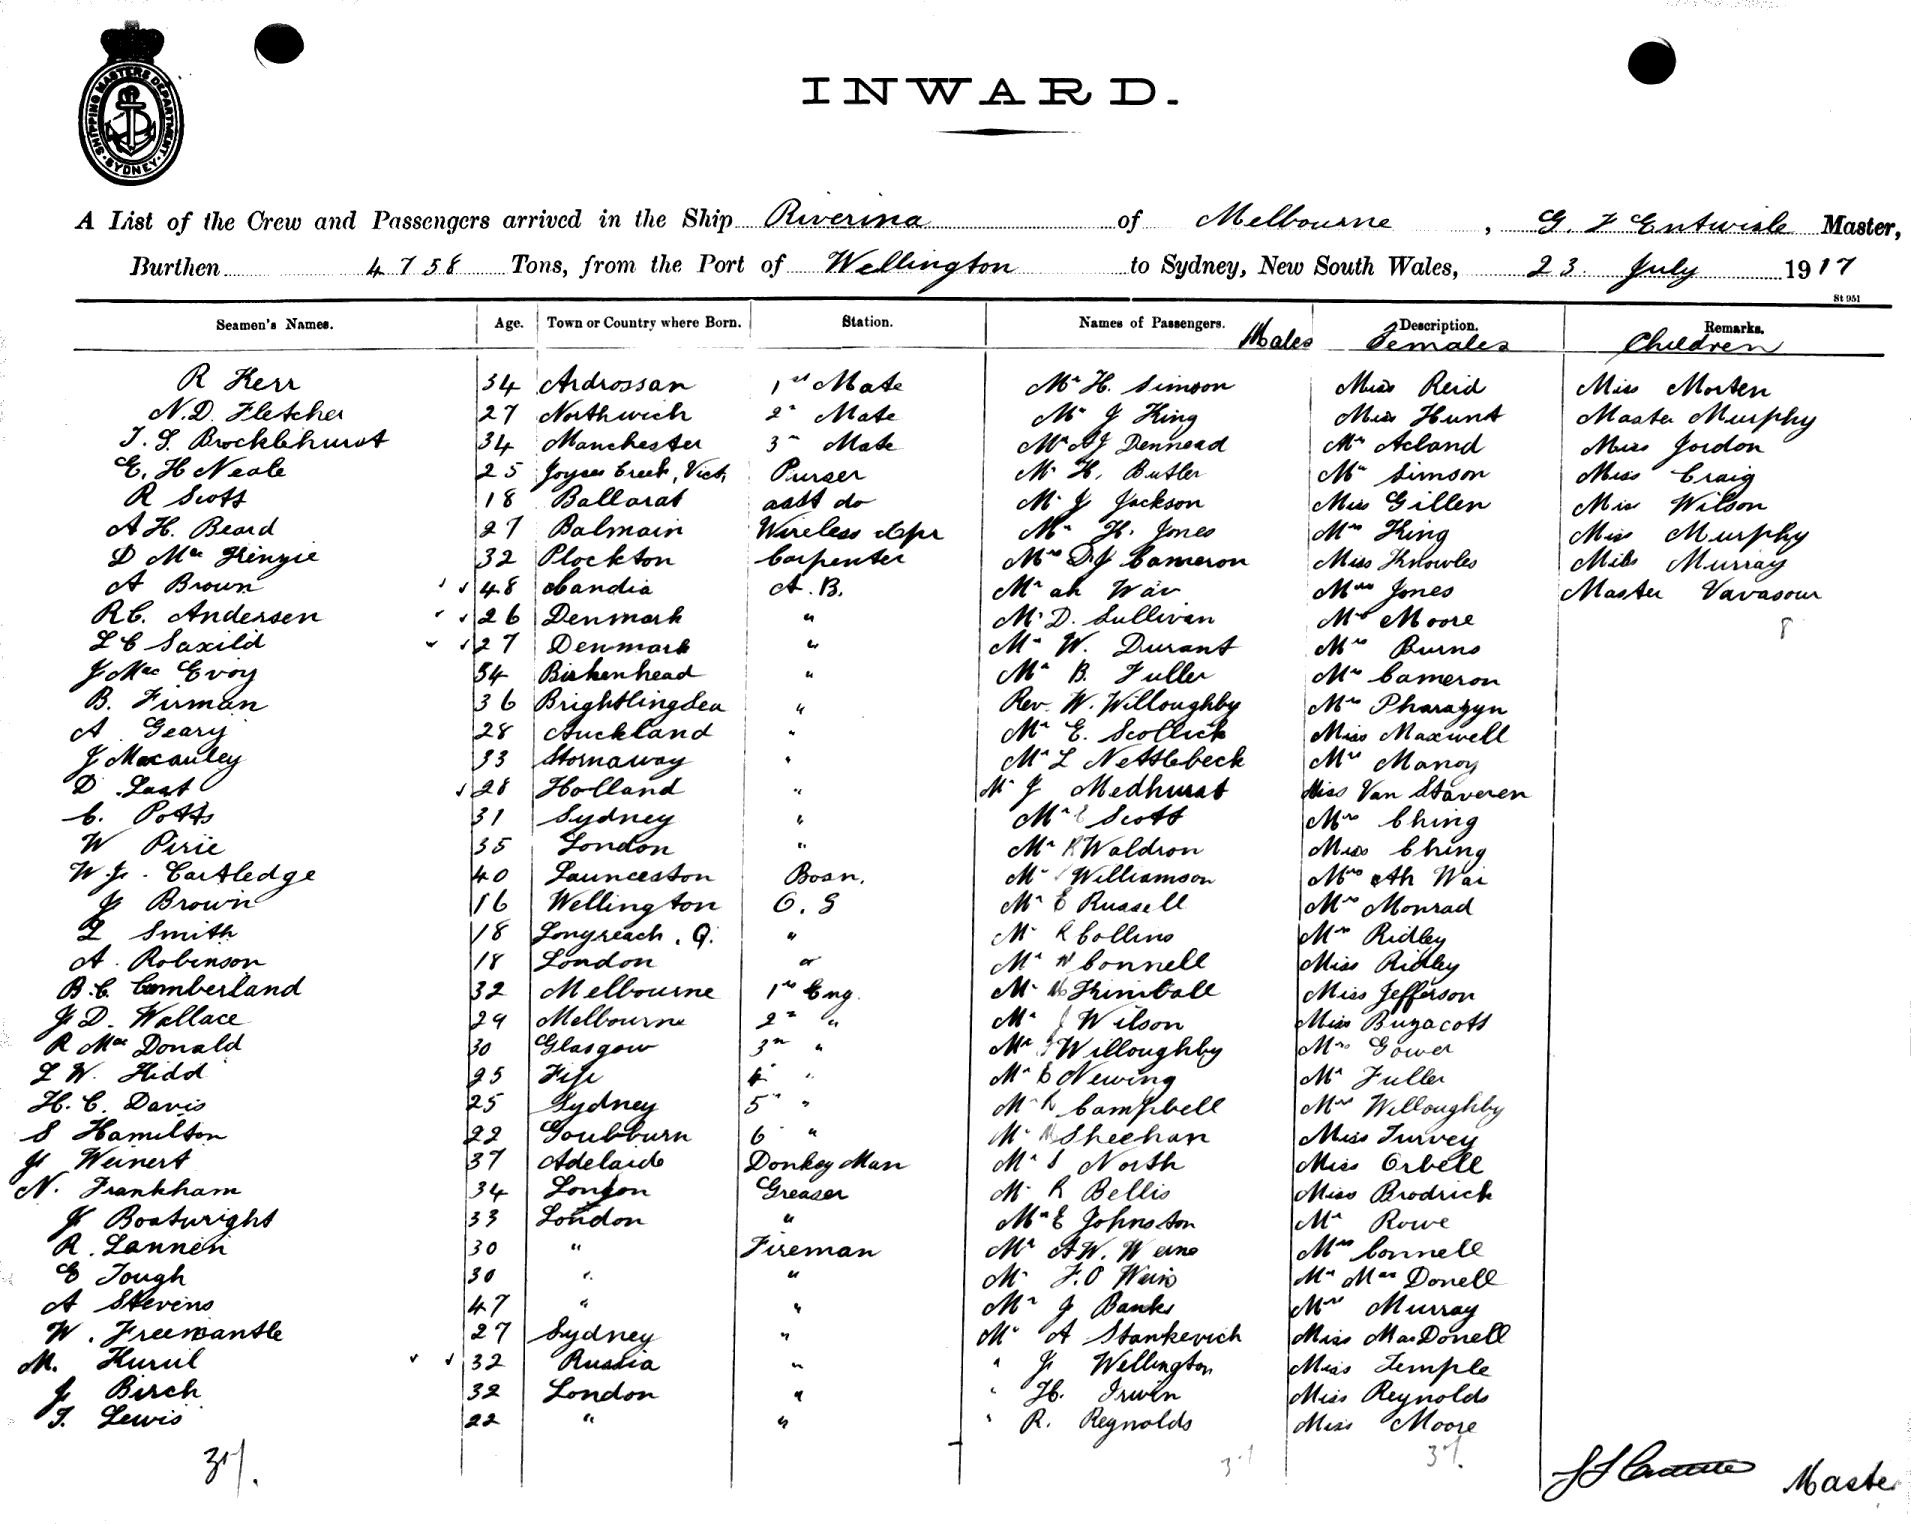 SHIPPING MASTERS DEPARTMENT · SYDNEY ·
INWARD.
A List of the Crew and Passengers arrived in the Ship Riverina of Melbourne, G. F Entwisle Master,
Burthen 4758 Tons, from the Port of Wellington to Sydney, New South Wales, 23 July 1917
St 951
Seamen's Names. Age. Town or Country where Born. Station. Names of Passengers. Description. Remarks.
Males Females Children
R Kerr 34 Ardrossan 1st Mate Mr H. Simson Miss Reid Miss Morten
N.D. Fletcher 27 Northwich 2n Mate Mr J King Miss Hunt Master Murphy
T. S. Brocklehurst 34 Manchester 3rd Mate Mr A J Dennead Mrs Acland Miss Jordon
E. H Neale 25 Joyces Creek, Vict. Purser Mr H. Butler Mrs Simson Miss Craig
R Scott 18 Ballarat asst do Mr J Jackson Miss Gillen Miss Wilson
A H. Beard 27 Balmain Wireless Opr Mr H. Jones Mrs King Miss Murphy
D McKinzie 32 Plockton Carpenter Mr D J Cameron Miss Knowles Miss Murray
A Brown 48 Candia A.B. Mr ah Wai Mrs Jones Master Vavasour
R C. Andersen 26 Denmark " Mr D. Sullivan Mrs Moore 8
L C Saxild 27 Denmark " Mr W. Durant Mrs Burns
J MacEvoy 54 Birkenhead " Mr B. Fuller Mrs Cameron
B. Firman 36 Brightlingsea " Rev. W. Willoughby Mrs Pharazyn
A Geary 28 Auckland " Mr E. Scollick Miss Maxwell
J Macauley 33 Stornaway " Mr L Nettlebeck Mrs Manoy
D. Last 28 Holland " Mr J Medhurst Miss Van Staveren
C. Potts 31 Sydney " Mr E Scott Mrs Ching
W Pirie 35 London " Mr R Waldron Miss Ching
W. J. Cartledge 40 Launceston Bosn. Mr Williamson Mrs Ah Wai
J Brown 16 Wellington O.S Mr E Russell Mrs Monrad
L Smith 18 Longreach, Q. " Mr R Collins Mrs Ridley
A. Robinson 18 London " Mr W Connell Miss Ridley
B. C. Cumberland 32 Melbourne 1st Eng. Mr Kimball Miss Jefferson
J D. Wallace 29 Melbourne 2n " Mr J Wilson Miss Buzacott
R MacDonald 30 Glasgow 3rd " Mr Willoughby Mrs Gower
L W. Kidd 25 Fiji 4 " Mr E Newing Mrs Fuller
H. C. Davis 25 Sydney 5 " Mr R Campbell Mrs Willoughby
S Hamilton 22 Goulburn 6 " Mr Sheehan Miss Turvey
J Weinert 37 Adelaide Donkey Man Mr S North Miss Orbell
N. Frankham 34 London Greaser Mr R Bellis Miss Brodrick
J Boatwright 33 London " Mr E Johnston Mrs Rowe
R. Lannen 30 " Fireman Mr A W. Weine Mrs Connell
E Tough 30 " " Mr F.O Wein Mrs MacDonell
A Stevens 47 " " Mr J Banks Mrs Murray
W. Freemantle 27 Sydney " Mr A Stankevich Miss MacDonell
M. Kurul 32 Russia " " J Wellington Miss Temple
J Birch 32 London " " H. Irwin Miss Reynolds
T. Lewis 22 " " " R. Reynolds Miss Moore
37. 37 37.
Master